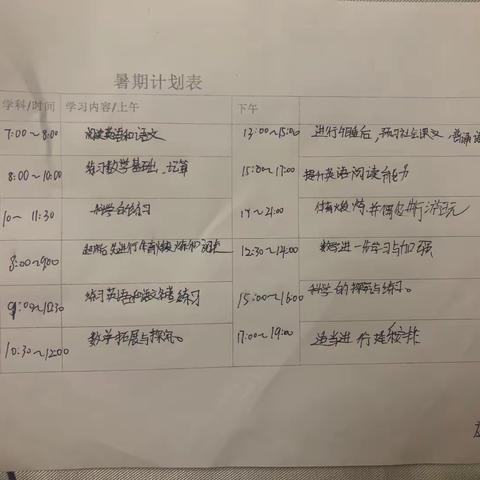 暑期计划表
学科/时间 学习内容/上午 下午
7:00~8:00 阅读英语和语文 13:00~15:00 进行午睡后,预习社会课文,普通
8:00~10:00 练习数学基础,计算 15:00~17:00 提升英语阅读能力
10~11:30 科学的练习 17~21:00 体育火炼,并偶尔进行游玩
8:00~9:00 起床后先进行体育火炼 12:30~14:00 数学进一步学习与加强
9:00~10:30 练习英语和语文 练习 15:00~16:00 科学的探究与练习。
10:30~12:00 数学拓展与探究。 17:00~19:00 适当进行 安排